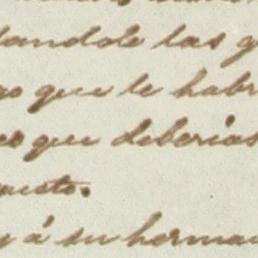 dandole las g
go que le habr
es que deberias
puesto.
y á su herma